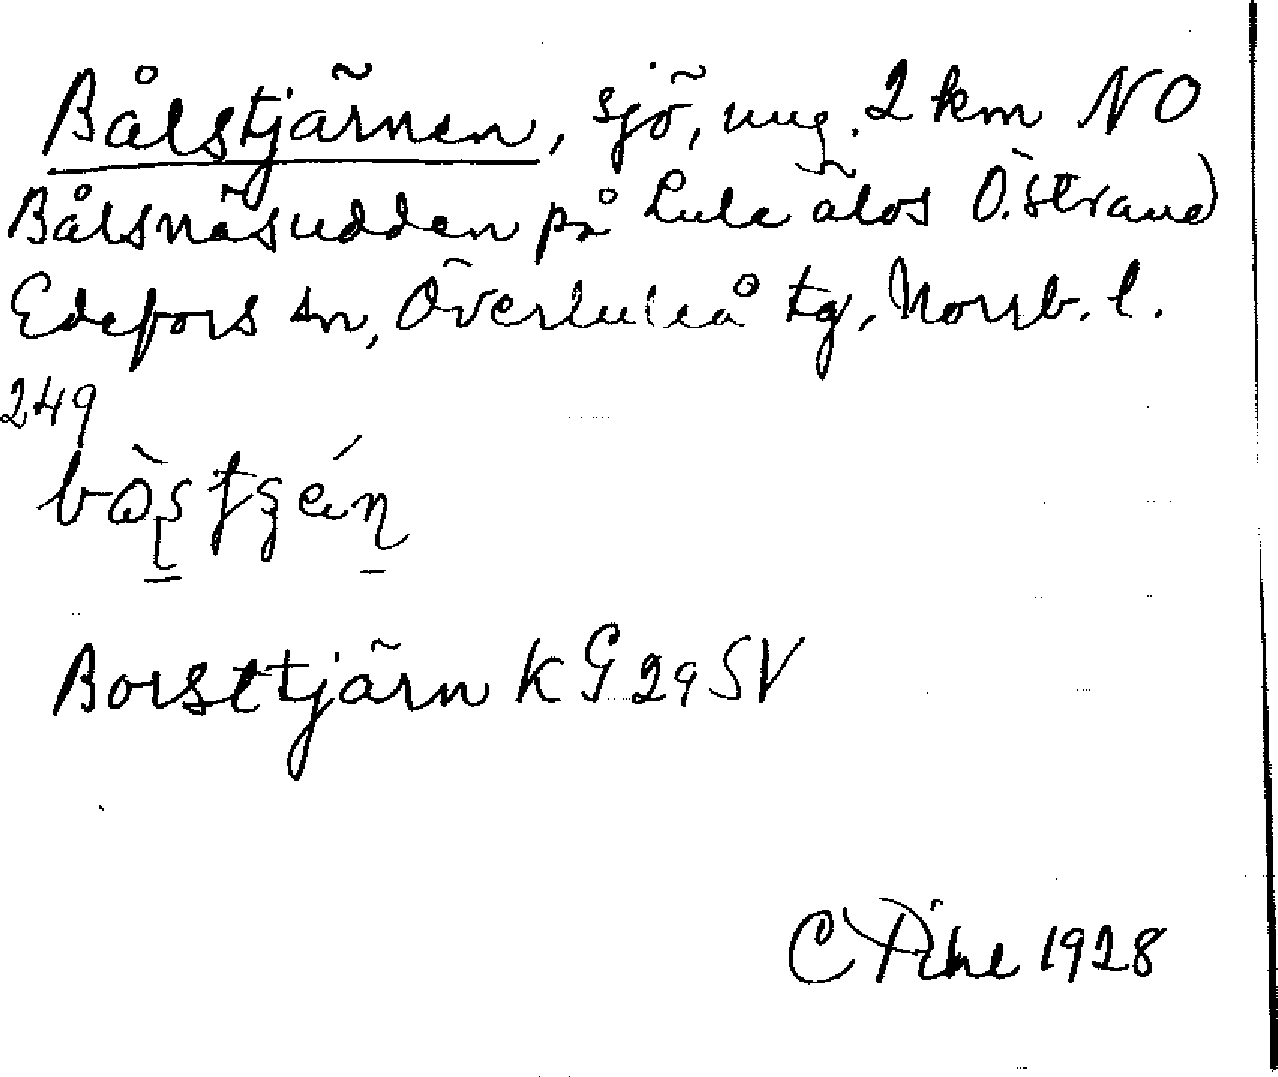 Bålstjärnen, sjö, ung. 2 km NO
Bålsnäsudden på Lule älvs Ö. strand
Edefors sn, Överluleå tg, Norrb. l.
249
Borsttjärn K G 29 SV
C Pihl 1928